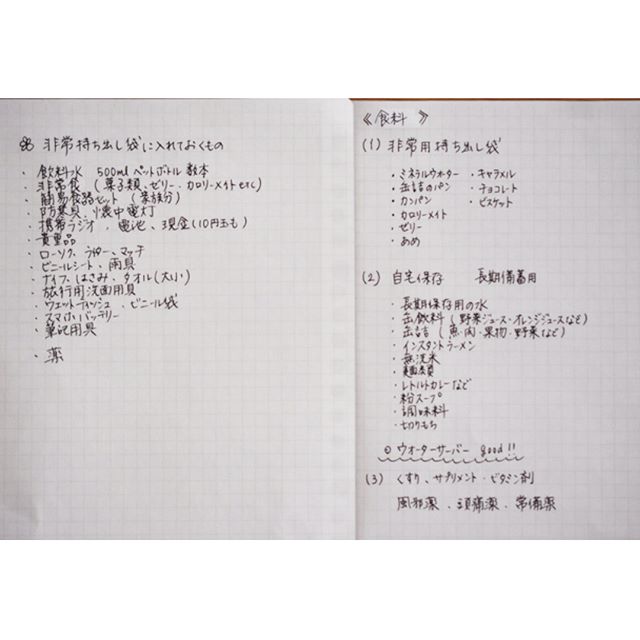 非常持ち出し袋に入れておくもの
・飲料水 500mlペットボトル数本
・非常食 (菓子類・ゼリー・カロリーメイトetc)
・簡易食器セット (家族分)
・防災具・懐中電灯
・携帯ラジオ、電池、現金(10円玉も)
・貴重品
・ローソク、ライター、マッチ
・ビニールシート、雨具
・ナイフ、はさみ、タオル(大小)
・旅行用洗面用具
・ウェットティッシュ、ビニール袋
・スマホバッテリー
・筆記用具
・薬
《食料》
(1) 非常用持ち出し袋
・ミネラルウォーター
・缶詰のパン
・カンパン
・カロリーメイト
・ゼリー
・あめ
・キャラメル
・チョコレート
・ビスケット
(2) 自宅保存 長期備蓄用
・長期保存用の水
・缶飲料 (野菜ジュース・オレンジジュースなど)
・缶詰 (魚・肉・果物・野菜など)
・インスタントラーメン
・無洗米
・麺類
・レトルトカレーなど
・粉スープ
・調味料
・切りもち
◎ウォーターサーバー good!!
(3) くすり、サプリメント・ビタミン剤
風邪薬、頭痛薬、常備薬